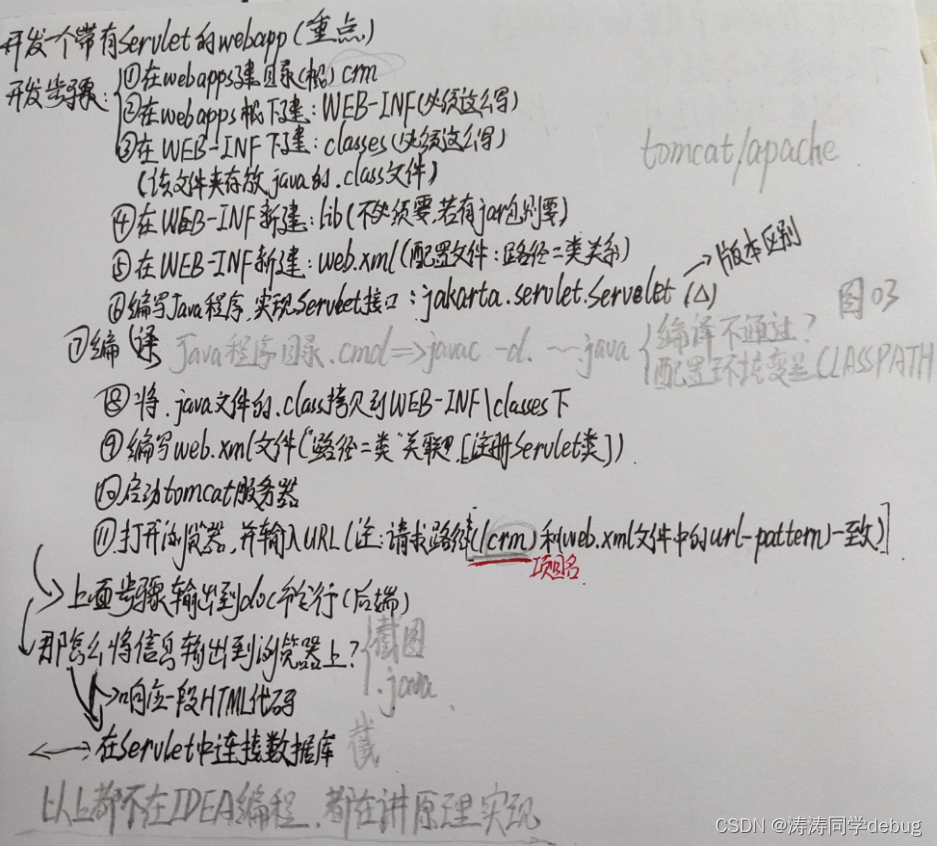 开发一个带有Servlet的webapp(重点)
开发步骤:
①在webapps建目录(根)crm
②在webapps根下建:WEB-INF(必须这么写)
③在WEB-INF下建:classes(必须这么写)
(该文件夹存放java的.class文件)
tomcat/apache
④在WEB-INF新建:lib(不必须要,若有jar包则要)
⑤在WEB-INF新建:web.xml(配置文件:路径=类关系)
⑥编写Java程序,实现Servlet接口:jakarta.servlet.Servelet(△)→版本区别
图03
⑦编译 Java程序目录.cmd=>javac -d. ~~java {编译不通过?
配置环境变量CLASSPATH
⑧将.java文件的.class拷贝到WEB-INF\classes下
⑨编写web.xml文件("路径=类"关联,[注册Servlet类])
⑩启动tomcat服务器
⑪打开浏览器,并输入URL(注:请求路径[(/crm)和web.xml文件中的url-pattern)一致)]
项目名
上面步骤输出到doc命令行(后端)
那怎么将信息输出到浏览器上?{截图
.java
→响应一段HTML代码
←→在Servlet中连接数据库 截
以上都不在IDEA编程,都在讲原理实现
CSDN @涛涛同学debug